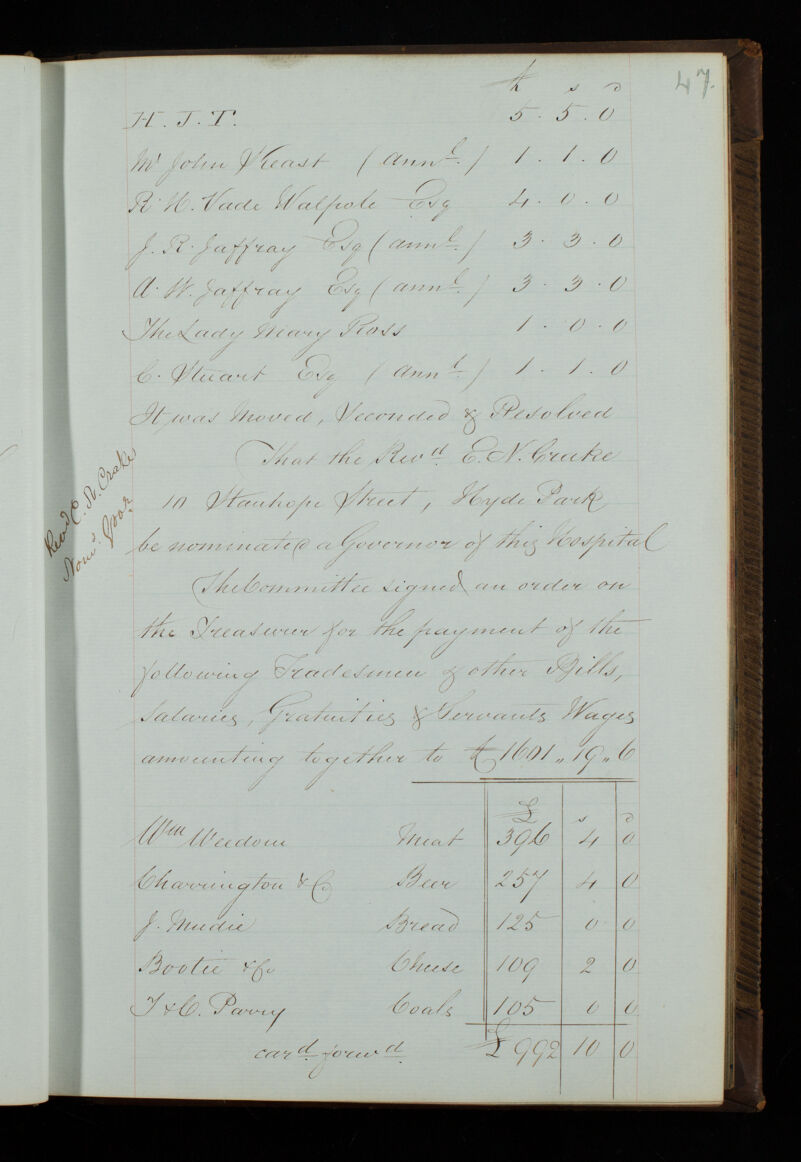 47.
£ s d
H. J. T. 5. 5. 0
Mr John Veast (annl.) 1. 1. 0
R. H. Vade Walpole Esq 4. 0. 0
J. R. Jaffray Esq (annl.) 3. 3. 0
A. W. Jaffray Esq (annl.) 3. 3. 0
The Lady Mary Ross 1. 0. 0
C. Stuart Esq (annl.) 1. 1. 0
It was Moved, Seconded & Resolved
That the Revd. E. N. Crake
10 Stanhope Street, Hyde Park
be nominated a Governor of this Hospital
Revd E. N. Crake
Nomd. Govr.
The Committee signed an order on
the Treasurer for the payment of the
following Tradesmen & other Bills,
Salaries, Gratuities & Servants Wages
amounting together to £1601 " 19 " 6
£ s d
Wm Weedon Meat 396 4 0
Charrington & Co Beer 257 4 0
J. Mudie Bread 125 0 0
Bootie & Co Cheese 109 2 0
T & C. Parry Coals 105 0 0
card. forwd. £992 10 0